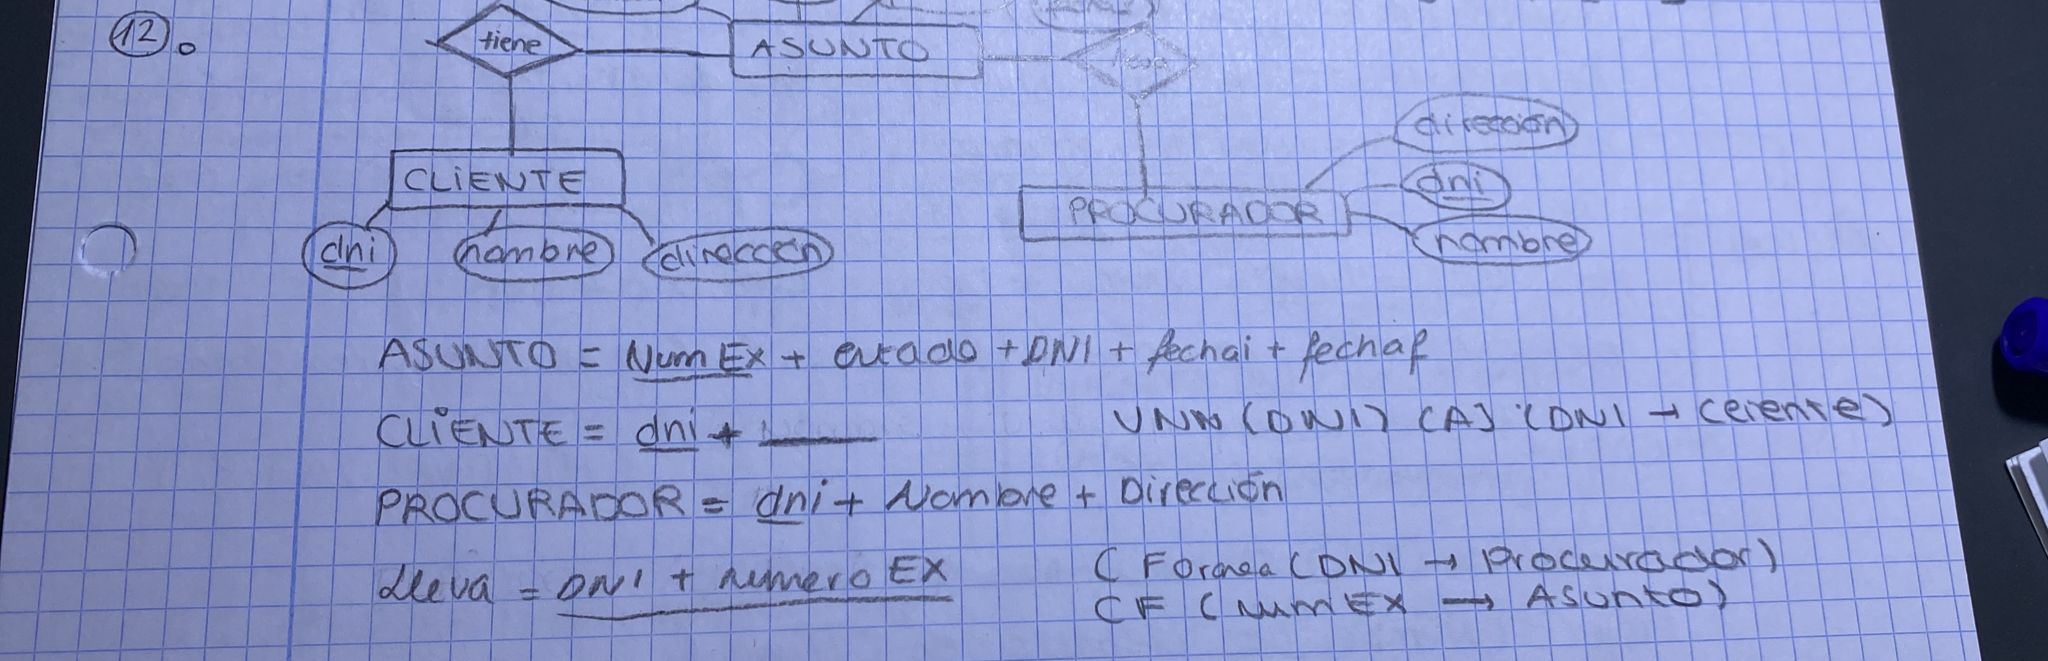 12.
tiene
ASUNTO
lleva
dirección
CLIENTE
dni
PROCURADOR
dni nombre dirección
nombre
ASUNTO = NumEx + estado + DNI + fechai + fechaf
CLIENTE = dni +
VNN (DNI) (A) (DNI → Cliente)
PROCURADOR = dni + Nombre + Dirección
lleva = DNI + numero EX
(Foránea (DNI → Procurador)
CF (NumEX → Asunto)